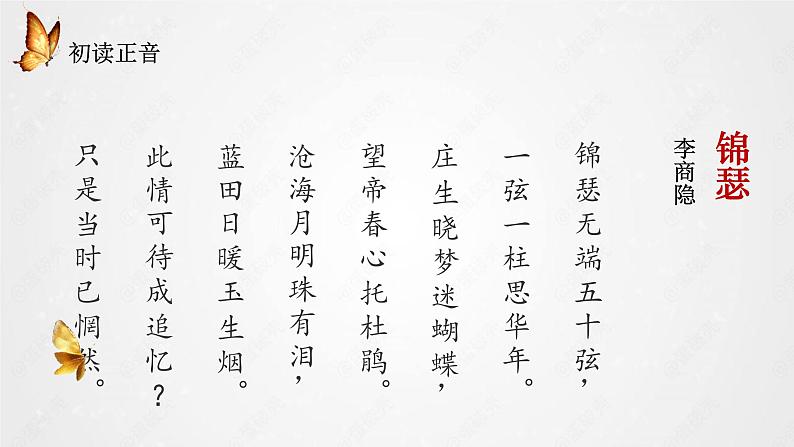 初读正音
锦瑟
李商隐
锦瑟无端五十弦，
一弦一柱思华年。
庄生晓梦迷蝴蝶，
望帝春心托杜鹃。
沧海月明珠有泪，
蓝田日暖玉生烟。
此情可待成追忆？
只是当时已惘然。